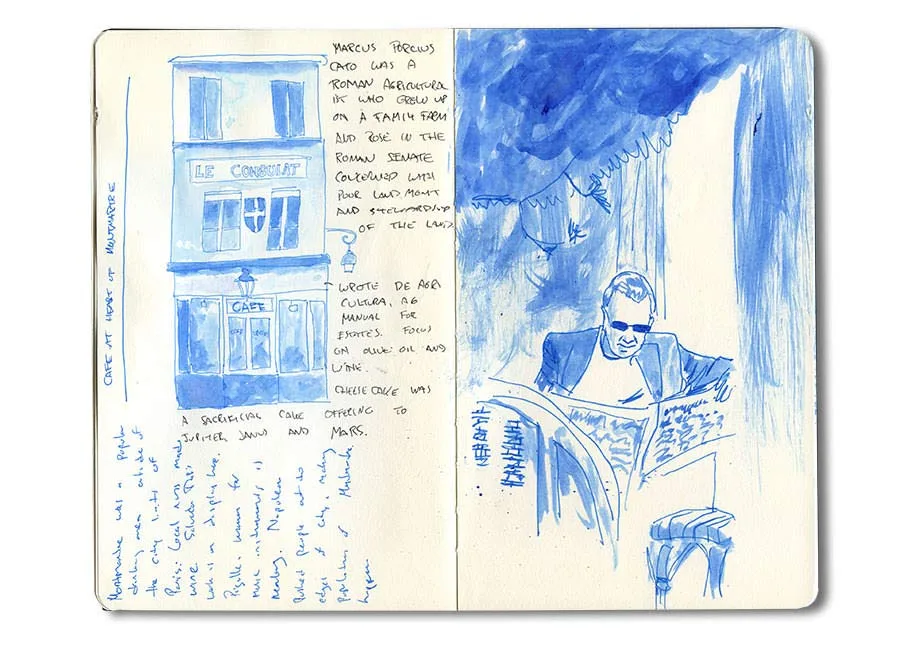 MARCUS PORCIUS
CATO WAS A
ROMAN AGRICULTURAL
IST WHO GREW UP
ON A FAMILY FARM
AND ROSE IN THE
ROMAN SENATE
CONCERNED WITH
POOR LAND MGMT
AND STEWARDSHIP
OF THE LAND.
LE CONSULAT
CAFE
- WROTE DE AGRI
CULTURA, AG
MANUAL FOR
ESTATES. FOCUS
ON OLIVE OIL AND
WINE.
CHEESECAKE WAS
A SACRIFICIAL CAKE OFFERING TO
JUPITER JANUS AND MARS.
CAFE AT HEART OF MONTMARTRE
Montmartre was a popular
drinking area outside of
the city limits of
Paris. Local nuns made
wine. Salvador Dali's
work on display here.
Pigalle known for
music instruments is
nearby. Napoleon
pushed people out to
edges of city, making
population of Montmartre
happen